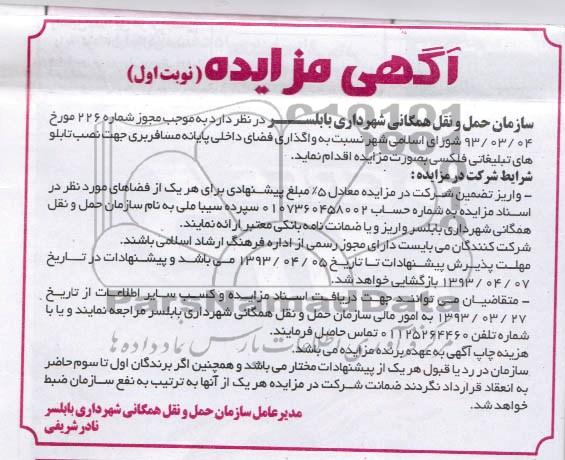 آگهی مزایده (نوبت اول)
سازمان حمل و نقل همگانی شهرداری بابلسر در نظر دارد به موجب مجوز شماره ۲۲۶ مورخ
۹۳/۰۳/۰۴ شورای اسلامی شهر نسبت به واگذاری فضای داخلی پایانه مسافربری جهت نصب تابلو
های تبلیغاتی فلکسی بصورت مزایده اقدام نماید.
شرایط شرکت در مزایده :
- واریز تضمین شرکت در مزایده معادل ۵٪ مبلغ پیشنهادی برای هر یک از فضاهای مورد نظر در
اسناد مزایده به شماره حساب ۰۱۰۷۳۶۰۴۵۸۰۰۲ سپرده سیبا ملی به نام سازمان حمل و نقل
همگانی شهرداری بابلسر واریز و یا ضمانت نامه بانکی معتبر ارائه نمایند.
شرکت کنندگان می بایست دارای مجوز رسمی از اداره فرهنگ ارشاد اسلامی باشند.
مهلت پذیرش پیشنهادات تا تاریخ ۱۳۹۳/۰۴/۰۵ می باشد و پیشنهادات در تاریخ
۱۳۹۳/۰۴/۰۷ بازگشایی خواهد شد.
- متقاضیان می توانند جهت دریافت اسناد مزایده و کسب سایر اطلاعات از تاریخ
۱۳۹۳/۰۳/۲۷ به امور مالی سازمان حمل و نقل همگانی شهرداری بابلسر مراجعه نمایند و یا با
شماره تلفن ۰۱۱۲۵۲۶۴۴۶۰ تماس حاصل فرمایند.
هزینه چاپ آگهی به عهده برنده مزایده می باشد.
سازمان در رد یا قبول هر یک از پیشنهادات مختار می باشد و همچنین اگر برندگان اول تا سوم حاضر
به انعقاد قرارداد نگردند ضمانت شرکت در مزایده هر یک از آنها به ترتیب به نفع سازمان ضبط
خواهد شد.
مدیرعامل سازمان حمل و نقل همگانی شهرداری بابلسر
نادر شریفی
ParsNamadData